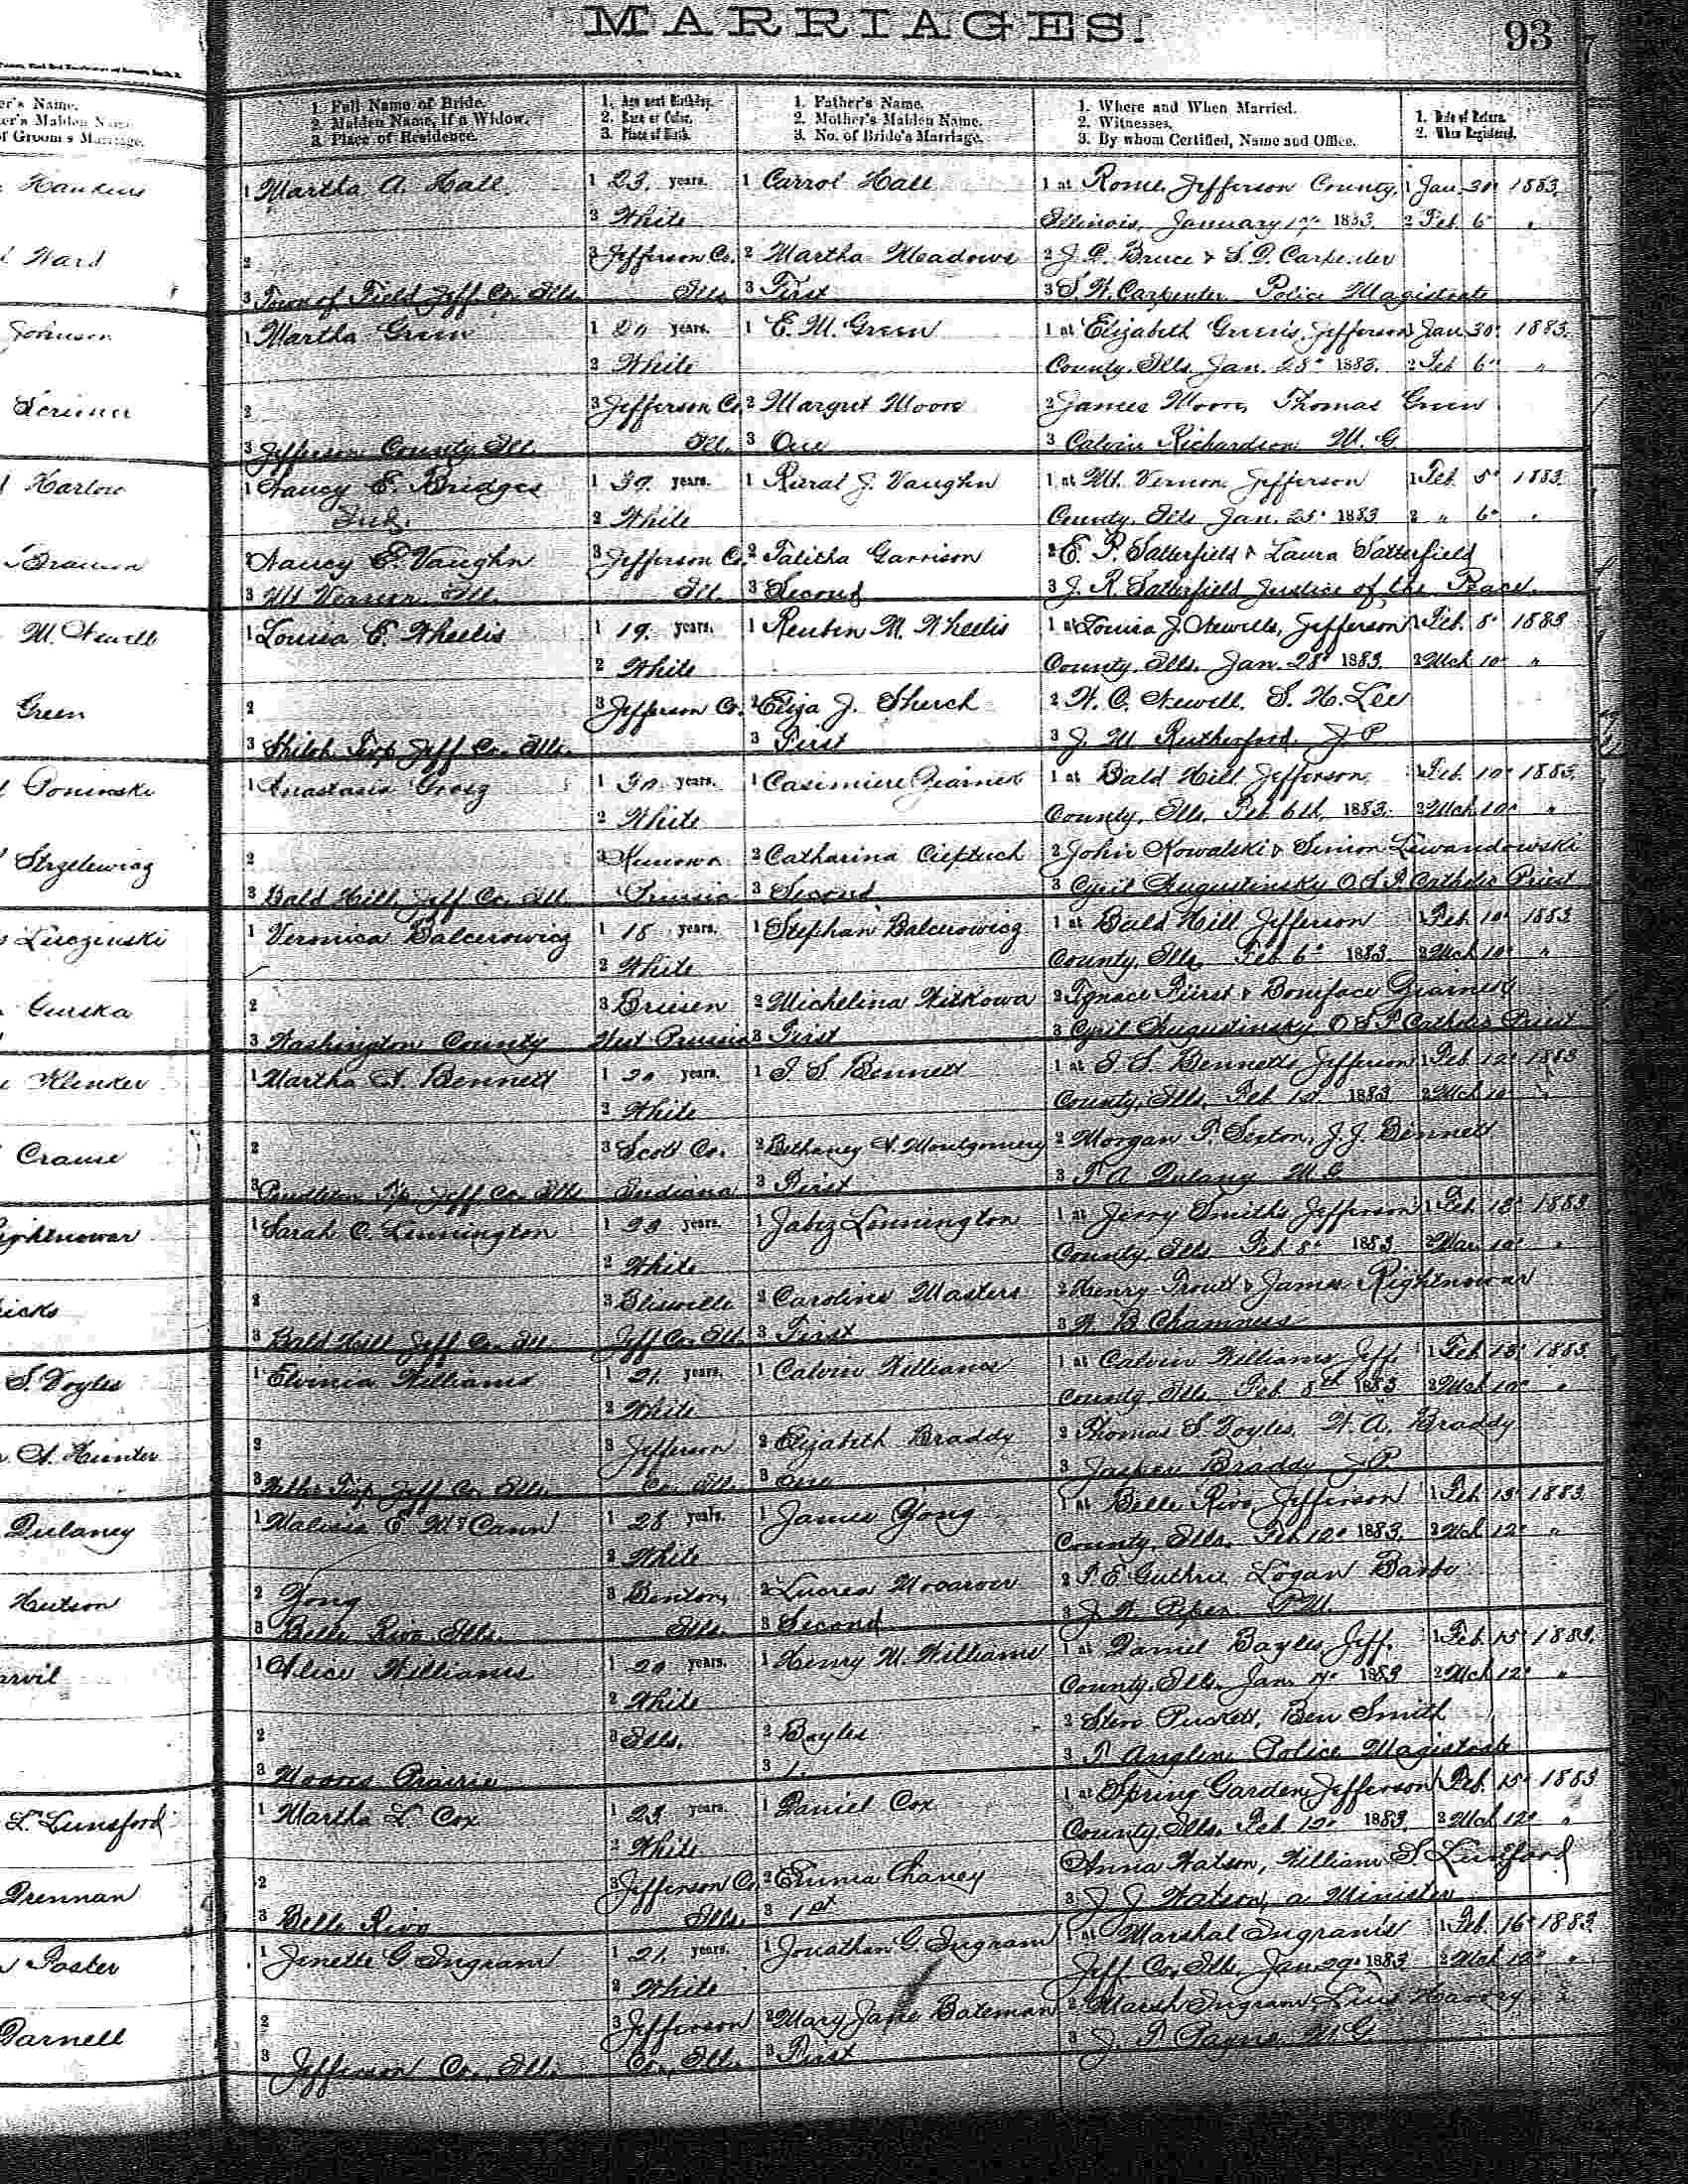 MARRIAGES. 93
er's Name.
er's Maiden Name
of Groom's Marriage.
1. Full Name of Bride.
2. Maiden Name, if a Widow.
3. Place of Residence.
1. Age next Birthday.
2. Race or Color.
3. Place of Birth.
1. Father's Name.
2. Mother's Maiden Name.
3. No. of Bride's Marriage.
1. Where and When Married.
2. Witnesses.
3. By whom Certified, Name and Office.
1. Date of Return.
2. When Registered.
Hawkins 1 Martha A. Hall. 1 23. years. 1 Carrol Hall 1 at Rome, Jefferson County, 1 Jan. 30 1883.
2 White Illinois, January 1883. 2 Feb 6 "
Ward 2 3 Jefferson Co. 2 Martha Meadows 2 J. C. Bruce & S. D. Carpenter
3 Town of Field Jeff. Co. Ills. Ills 3 First 3 S. W. Carpenter Police Magistrate
Johnson 1 Martha Green 1 20 years. 1 E. M. Green 1 at Elizabeth Green's, Jefferson 1 Jan. 30 1883.
2 White County, Ills. Jan. 28 1883. 2 Feb 6 "
Scrimer 2 3 Jefferson Co. 2 Margret Moore 2 James Moore, Thomas Green
3 Jefferson County Ill. Ill. 3 One 3 Calvin Richardson M. G.
Harlow 1 Nancy E. Bridges 1 39. years. 1 Rural J. Vaughn 1 at Mt. Vernon Jefferson 1 Feb. 5 1883
2 White County, Ills Jan. 25 1883 2 " 6 "
2 Nancy E. Vaughn 3 Jefferson Co. 2 Talitha Garrison 2 E. P. Satterfield & Laura Satterfield
3 Mt Vernon, Ill. Ill. 3 Second 3 J. R. Satterfield Justice of the Peace.
M. Newell 1 Louisa E. Wheelis 1 19. years. 1 Reuben M. Wheelis 1 at Louisa J. Newells, Jefferson 1 Feb. 8 1883
2 White County, Ills. Jan. 28 1883 2 Mch 10 "
Green 2 3 Jefferson Co. 2 Eliza J. 2 W. C. Newell. S. H. Lee
3 Shiloh Twp Jeff Co. Ills. 3 First 3 J. M. Rutherford J. P.
Poninski 1 Anastasia 1 30 years. 1 Casimiere 1 at Bald Hill Jefferson 1 Feb. 10 1883.
2 White County, Ills. Feb 6th, 1883. 2 Mch 10 "
Strzelewicz 2 3 2 Catharina 2 John Kowalski & Simon Lewandowski
3 Bald Hill, Jeff Co. Ill. Prussia 3 Second 3 Cyril Augustinsky O.S.F. Catholic Priest
1 Veronica Balcerowicz 1 18 years. 1 Stephan Balcerowicz 1 at Bald Hill Jefferson 1 Feb. 10 1883
2 White County, Ills. Feb 6 1883. 2 Mch 10 "
Gurska 2 3 Briesen 2 Michelina Witkowa 2 Ignace Fürst & Boniface
3 Washington County West Prussia 3 First 3 Cyril Augustinsky O.S.F. Catholic Priest
Klenker 1 Martha A. Bennett 1 20 years. 1 S. S. Bennett 1 at S. S. Bennetts Jefferson 1 Feb 12 1883
2 White County, Ills. Feb 1883 2 Mch 10 "
Crause 2 3 Scott Co. 2 Bethaney Montgomery 2 Morgan P. Sexton, J. J. Bennett
3 Pendleton Tp. Jeff Co. Ills Indiana 3 First 3 T. A. Dulany M. G.
Rightnowar 1 Sarah C. Linnington 1 years. 1 Jabiz Linnington 1 at Jerry Smiths, Jefferson 1 Feb. 13 1883
2 White County, Ills Feb 8 1883 2 Mar. 10 "
2 3 2 Caroline Masters 2 Henry Trout & James Rightnowar
3 Bald Hill Jeff Co. Ill. Jeff Co. Ill. 3 First 3 W. B. Chamness
S. Voyles 1 Elvinia Williams 1 21. years. 1 Calvin Williams 1 at Calvin Williams Jeff. 1 Feb 13 1883
2 White County, Ills. Feb 8th 1883 2 Mch 10 "
Hunter 2 3 Jefferson 2 Elizabeth Braddy 2 Thomas S. Voyles, W. A. Braddy
3 Jeff Co. Ills. Co. Ill. 3 One 3 Jasper Braddy J. P.
Dulaney 1 E. McCann 1 28 years. 1 James Yong 1 at Belle Rive, Jefferson 1 Feb. 13 1883
2 White County, Ills. Feb 12 1883. 2 Mch 12 "
Hutson 2 Yong 3 Benton, 2 2 Guthrie Logan
3 Belle Rive, Ills. Ills. 3 Second 3 J. W. Piper
1 Alice Williams 1 20 years. 1 Henry M. Williams 1 at Daniel Bayles, Jeff. 1 Feb. 15 1883.
2 White County, Ills. Jan. 1883 2 Mch 12 "
2 3 Ills. 2 Bayles 2 Puckett, Ben Smith
3 Moores Prairie 3 1. 3 Anglen, Police Magistrate
L. Lunsford 1 Martha L. Cox 1 23 years. 1 Daniel Cox 1 at Spring Garden, Jefferson 1 Feb. 15 1883
2 White County, Ills. Feb. 12 1883. 2 Mch 12 "
Drennan 2 3 Jefferson Co. 2 Emma Chaney Anna Watson, William S. Lunsford
3 Belle Rive Ills. 3 1st 3 J. J. Watson, a Minister
Foster 1 Jenette G. Ingram 1 21. years. 1 Jonathan G. Ingram 1 at Marshal Ingram's 1 Feb. 16 1883
2 White Jeff. Co., Ills. Jan. 29 1883 2 Mch 12 "
Darnell 2 3 Jefferson 2 Mary Jane Bateman 2 Marsh Ingram,
3 Jefferson Co., Ills. Co., Ill. 3 First 3 J. T. Payne M. G.